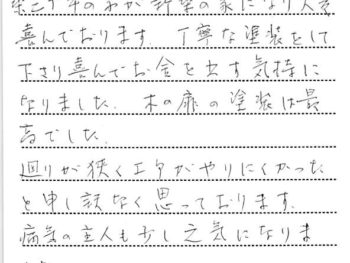 築二十年のわが新築の家になり大変
喜んでおります。丁寧な塗装をして
下さり喜んでお金を出す気持に
なりました。木の扉の塗装は最
高でした。
廻りが狭く工夕がやりにくかった
と申し訳なく思っております。
病気の主人も少し元気になりま